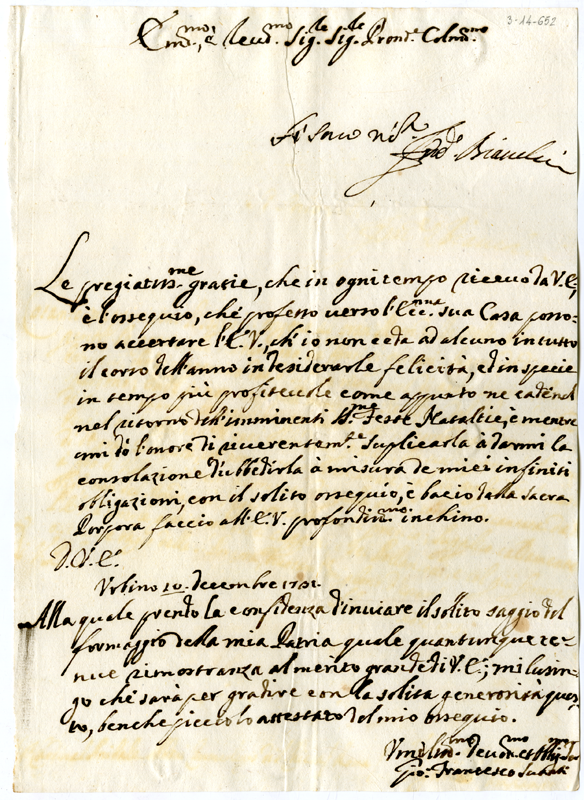 3-14-652
Em.mo, e Reud.mo Sig.le Sig.le Pron.e Colmo.mo
Bianchi
Le pregiatis.me grazie, che in ogni tempo riceuo da V.E.,
è l'ossequio, che professo uerso l'Ecc.ma sua Casa posso-
no accertare l'E.V., ch'io non ceda ad alcuno in tutto
il corso dell'anno in desiderarle felicità, ed in specie
in tempo più profiteuole come appunto ne cade
nel ritorno dell'imminenti S.me Feste Natalizie; è mentre
mi dò l'onore di riuerentem.e suplicarla à darmi la
consolazione d'ubbidirla à misura de miei infiniti
obligazioni, con il solito ossequio, è bacio della Sacra
Porpora faccio all'E.V. profondis.mo inchino.
D.V.E.
Vrbino 10. decembre 1701.
Alla quale prendo la confidenza d'inuiare il solito saggio del
formaggio della mia Patria quale quantunque te-
nue rimostranza al merito grande di V.E.; mi lusin-
go che sarà per gradire con la solita generosità ques-
to, benche piccolo attestato del mio ossequio.
Vmiliss.mo Deuot.mo et Oblig.mo Ser
Gio. Francesco